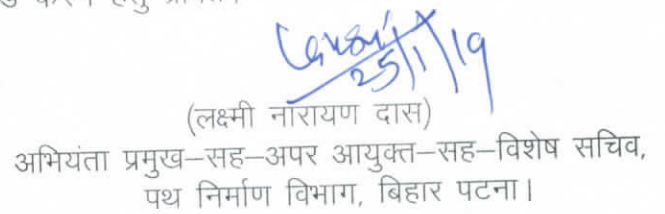 25/1/19
(लक्ष्मी नारायण दास)
अभियंता प्रमुख–सह–अपर आयुक्त–सह–विशेष सचिव,
पथ निर्माण विभाग, बिहार पटना।